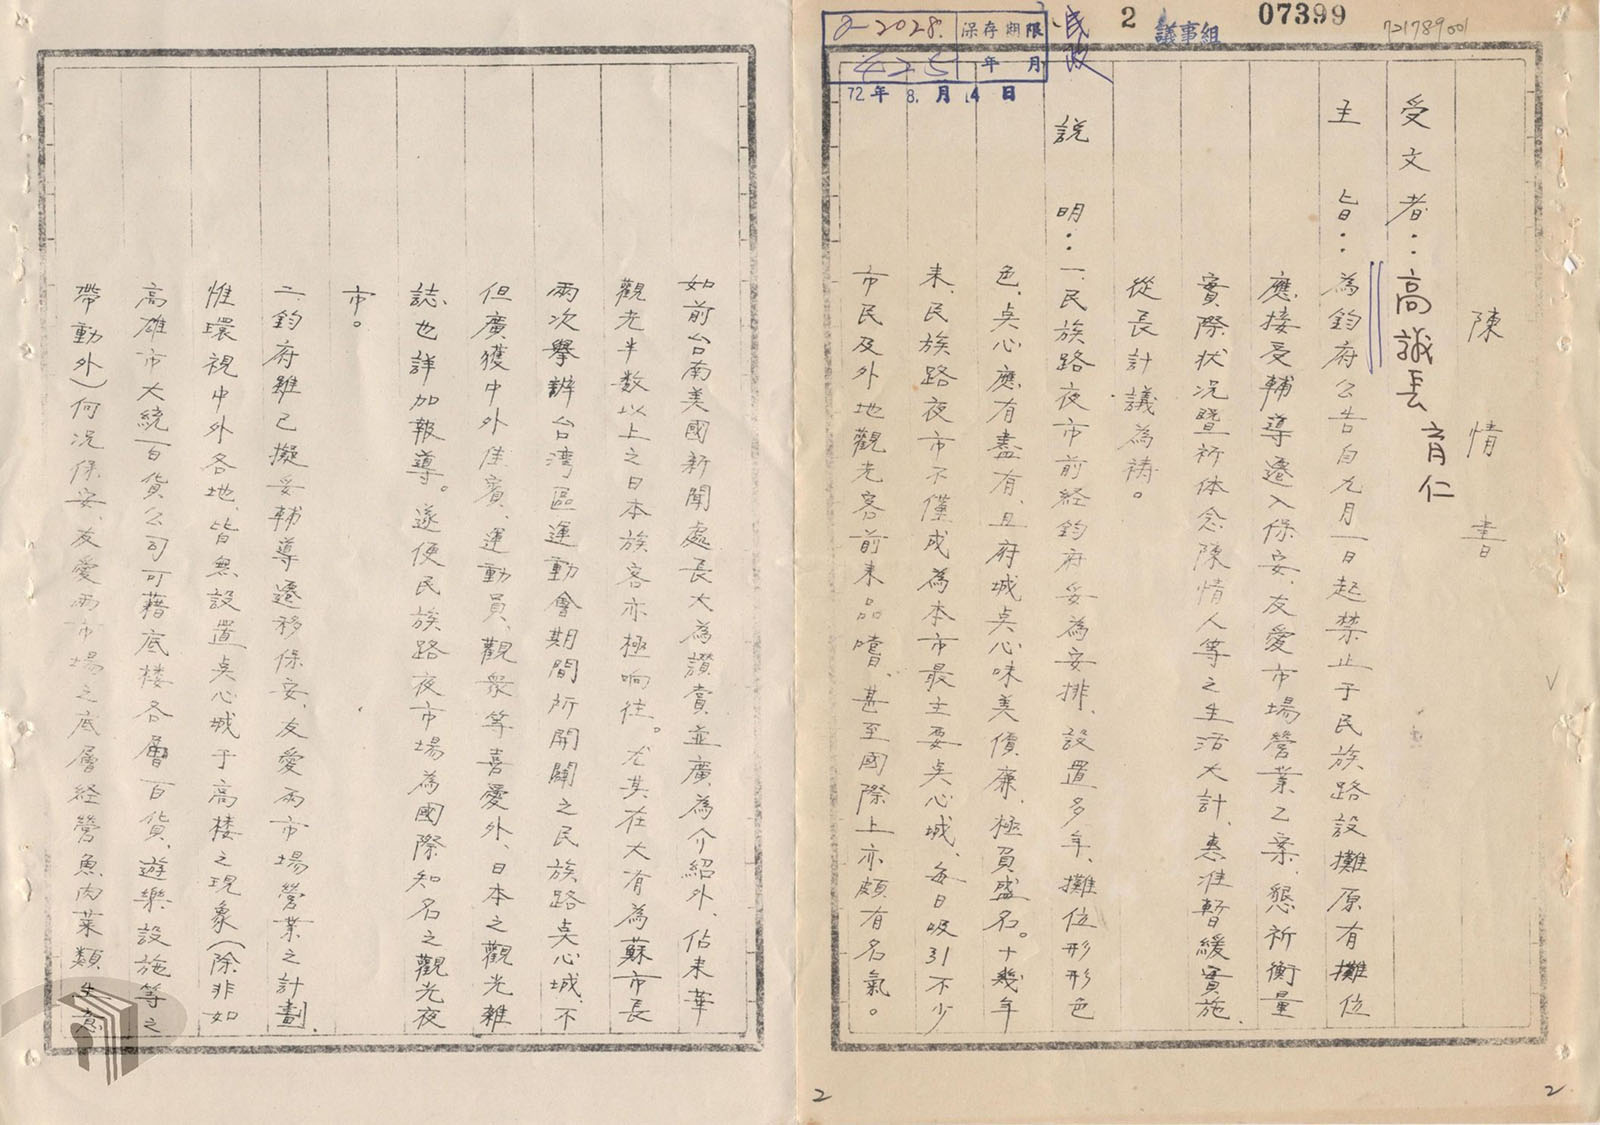 2
07399
721789001
議事組
民政
2-2028.
保存期限
425
年 月
72年8.月14日
陳情書
受文者：高議長育仁
主旨：為鈞府公告自九月一日起禁止于民族路設攤原有攤位
應接受輔導遷入保安、友愛市場營業乙案，懇祈衡量
實際状况暨祈体念陳情人等之生活大計，惠准暫緩實施，
從長計議為禱。
說明：一、民族路夜市前経鈞府妥為安排、設置多年、攤位形形色
色，点心應有盡有，且府城点心味美價廉，極負盛名。十幾年
来，民族路夜市不僅成為本市最主要点心城、每日吸引不少
市民及外地觀光客前来品嚐、甚至國際上亦頗有名氣。
2
如前台南美國新聞處長大為讚賞並廣為介紹外、佔来華
觀光半数以上之日本族客亦極响往。尤其在大有為蘇市長
兩次舉辦台湾區運動會期間所開闢之民族路点心城、不
但廣獲中外佳賓、運動員、觀衆等喜愛外、日本之觀光雜
誌也詳加報導。遂使民族路夜市場為國際知名之觀光夜
市。
二、鈞府雖已擬妥輔導遷移保安、友愛兩市場營業之計劃，
惟環視中外各地，皆無設置点心城于高楼之現象（除非如
高雄市大統百貨公司可藉底楼各層百貨，遊樂設施等之
帶動外）何况保安、友愛兩市場之底層経營魚肉菜類生意
2